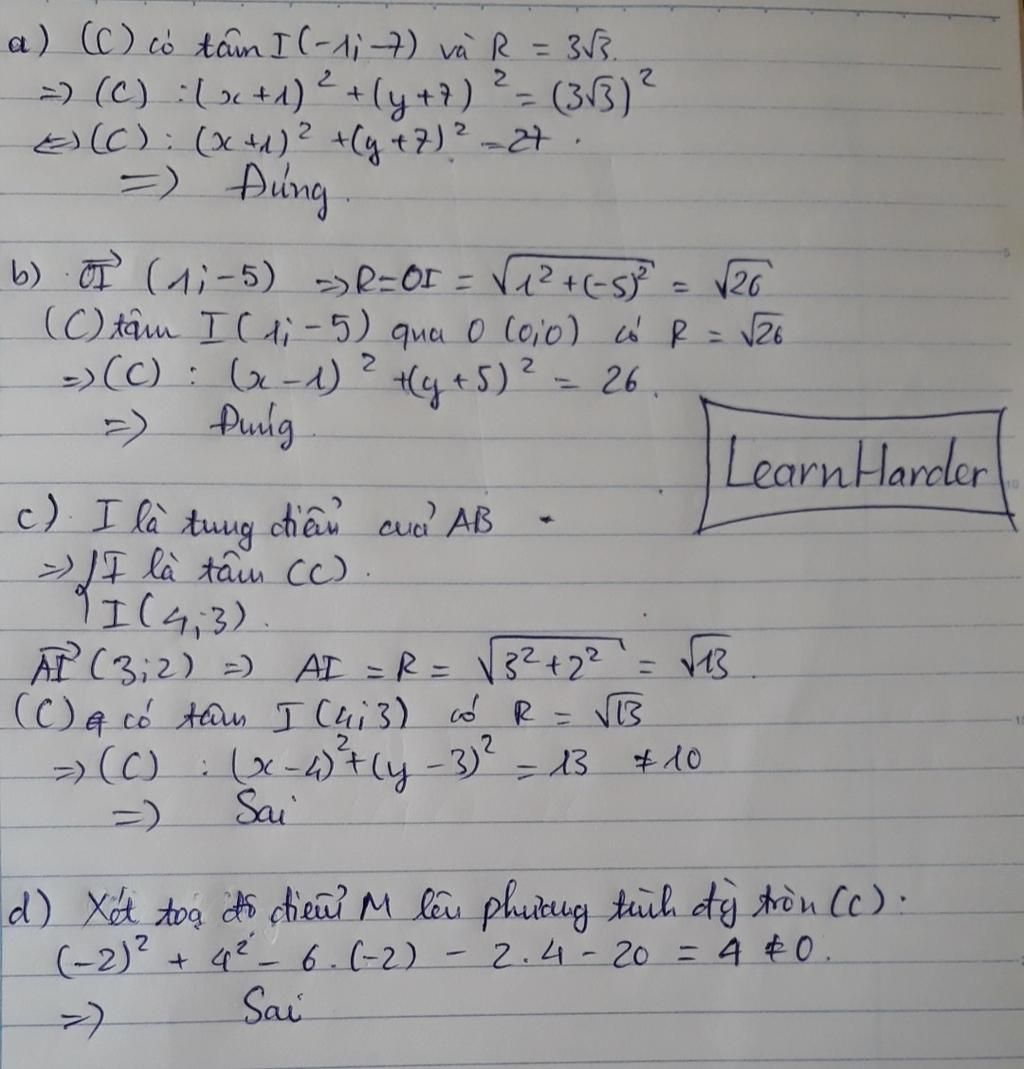 a) (C) có tâm I(-1;-7) và R = 3√3.
=> (C) : (x+1)² + (y+7)² = (3√3)²
<=> (C) : (x+1)² + (y+7)² = 27.
=> Đúng.
b) OI→ (1;-5) => R=OI = √(1²+(-5)²) = √26
(C) tâm I(1;-5) qua O(0;0) có R = √26
=> (C) : (x-1)² + (y+5)² = 26.
=> Đúng.
LearnHarder
c) I là trung điểm của AB
=> { I là tâm (C).
I(4;3).
AI→ (3;2) => AI = R = √(3²+2²) = √13.
(C) có tâm I(4;3) có R = √13
=> (C) : (x-4)² + (y-3)² = 13 ≠ 10
=> Sai
d) Xét toạ độ điểm M lên phương trình đg tròn (C):
(-2)² + 4² - 6.(-2) - 2.4 - 20 = 4 ≠ 0.
=> Sai